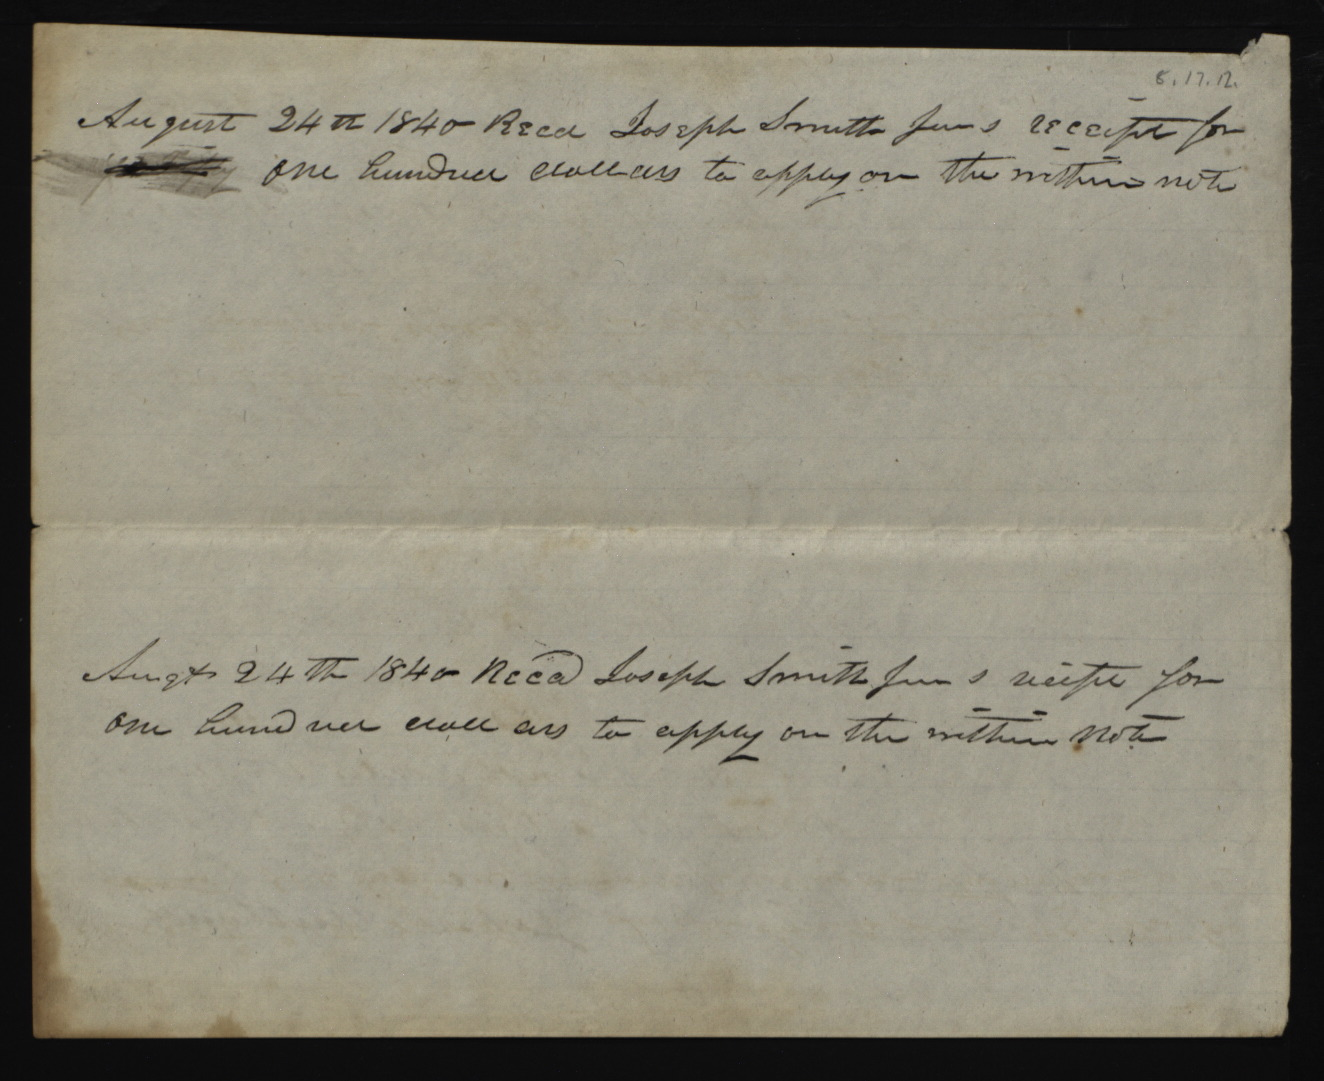 8.17.12.
August 24th 1840 Recd Joseph Smith Juns receipt for
one hundred dollars to apply on the within note
Augt 24th 1840 Recd Joseph Smith Jun s reciept for
one hundred dollars to apply on the within note